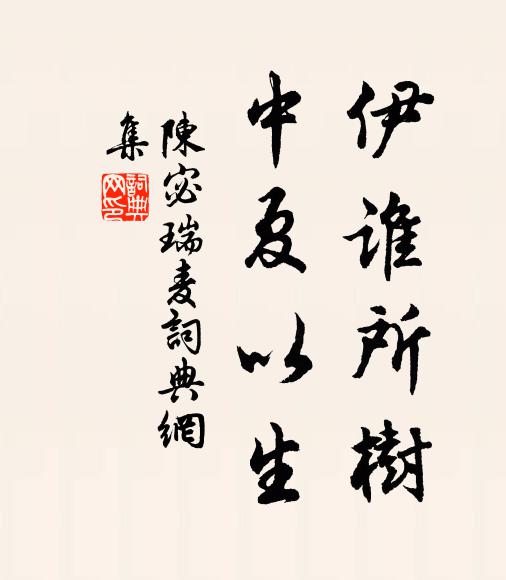 伊誰所樹
中夏以生
陳宓瑞麦詞典網
集
詞典網印